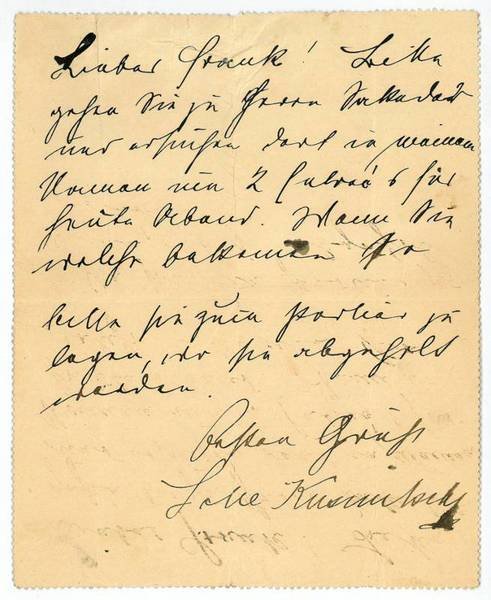 Lieber Frank! Bitte
gehen Sie zu Herrn
und ersuchen dort in meinem
Namen um 2 Entrée's für
heute Abend. Wenn Sie
welche bekommen so
bitte sie zum Portier zu
legen, wo sie abgeholt
werden.
Besten Gruß